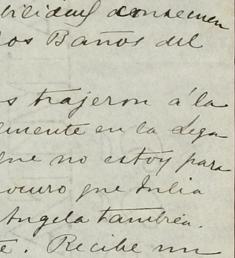 consecuen
los Baños del
s trajeron á la
mente en la Lega
que no estoy para
ocuro que Julia
Angela tambien.
e. Recibe un